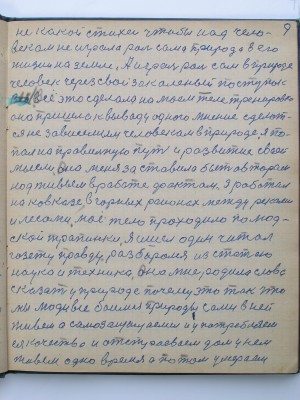 9
не какой стихеи чтобы над чело-
веком не играла рол сама природа в его
жизни на земле, А играл рол сам в природе
человек через свой закаленый поступок
всё это сделал на моем теле тренировкой
оно пришло к выводу одного мнение сделать-
ся не зависемым человекам в природе. Я по-
пал на правильную путь и развитие своей
мысли, она меня заставила быт автором
под тивным в работе фактам. Я работал
на ковказе, в горных районах между реками
и лесами, моё тело проходило по люд-
ской тропинки, Я шел один читал
газету правду, разбирался из статею
наука и техника, Она мне родила слова
сказат у природе почему это так что
мы люди все боимся природы сами в ней
живем а самозащищаемся и употребляем
ея качество и отстраеваем дом у нем
живем одно время а потом умераем